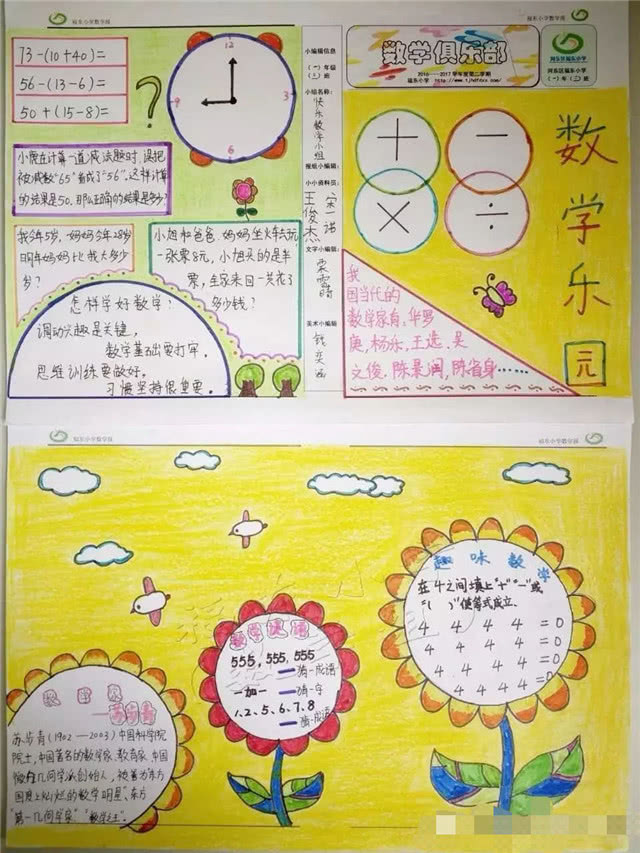 福东小学数学报
福东小学数学报
73-(10+40)=
56-(13-6)=
50+(15-8)=
?
12
3
6
9
小编辑信息
(一)年级
(三)班
小组名称:
快乐数学小组
报纸小编辑:
小小资料员:
王俊杰
宋一诺
文字小编辑:
美术小编辑
数学俱乐部
2016——2017学年度第二学期
福东小学
河东区福东小学
数学乐园
+
-
×
÷
我
国当代的
数学家有:华罗
庚,杨乐,王选,吴
文俊.陈景润,陈省身……
被减数"65"看成了"56".这样计算
的结果是50,那么正确的结果是多少?
我今年5岁,妈妈今年28岁
明年妈妈比我大多少
岁?
小旭和爸爸.妈妈坐火车去玩
一张票8元,小旭买的是半
票,全家来回一共花了
多少钱?
怎样学好数学?
调动兴趣是关键,
数学基础要打牢,
思维训练要做好,
习惯坚持很重要.
福东小学数学报
福东小学数学报
趣味数学
在4之间填上"+""-"或
"( )"使等式成立.
4 4 4 4 =0
4 4 4 4 =0
4 4 4 4 =0
4 4 4 4 =0
数学谜语
555,555,555
猜一成语
加一
猜一字
1、2、5、6、7、8
猜一成语
数学家
苏步青
苏步青(1902—2003)中国科学院
院士,中国著名的数学家、教育家,中国
微分几何学派创始人,被誉为东方
国度上灿烂的数学明星、东方
"第一几何学家""数学之王".